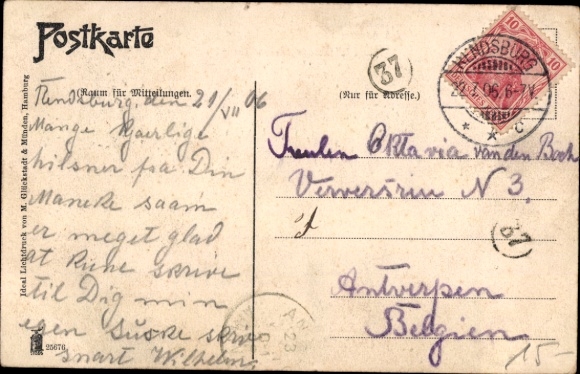 Postkarte
(Raum für Mitteilungen.
(Nur für Adresse.)
Rendsburg, den 21/VII 06
Mange Kjaerlige
hilsner fra Din
Maneke saam
er meget glad
at Kune skrive
til Dig min
egen Suske skriv
snart Wilhelm
Ideal Lichtdruck von M. Glückstadt & Münden, Hamburg
25676
37
RENDSBURG
6-7N
* * c
10 10
Freulen Oktavia van den Bosch
Verversrui N 3.
Antwerpen
Belgien
37
15-